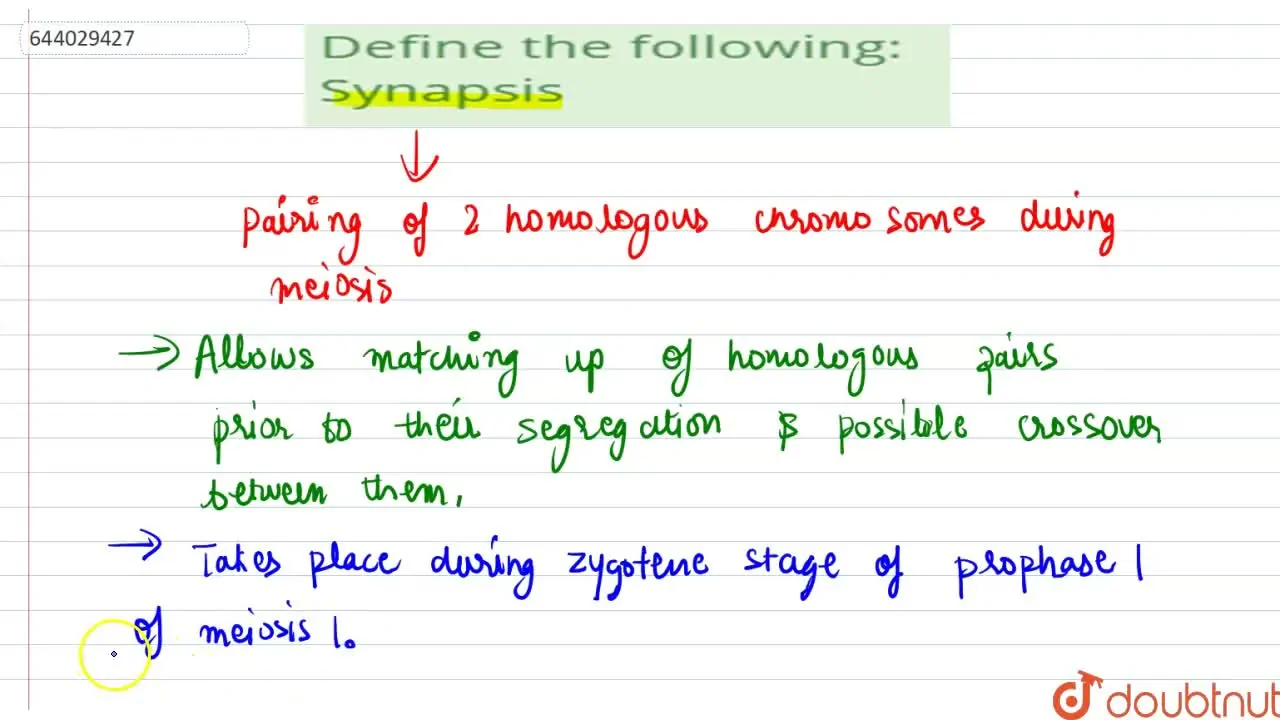 644029427
Define the following:
Synapsis
Pairing of 2 homologous chromosomes during
meiosis
→ Allows matching up of homologous pairs
prior to their segregation & possible crossover
between them,
→ Takes place during zygotene stage of prophase 1
of meiosis 1.
doubtnut